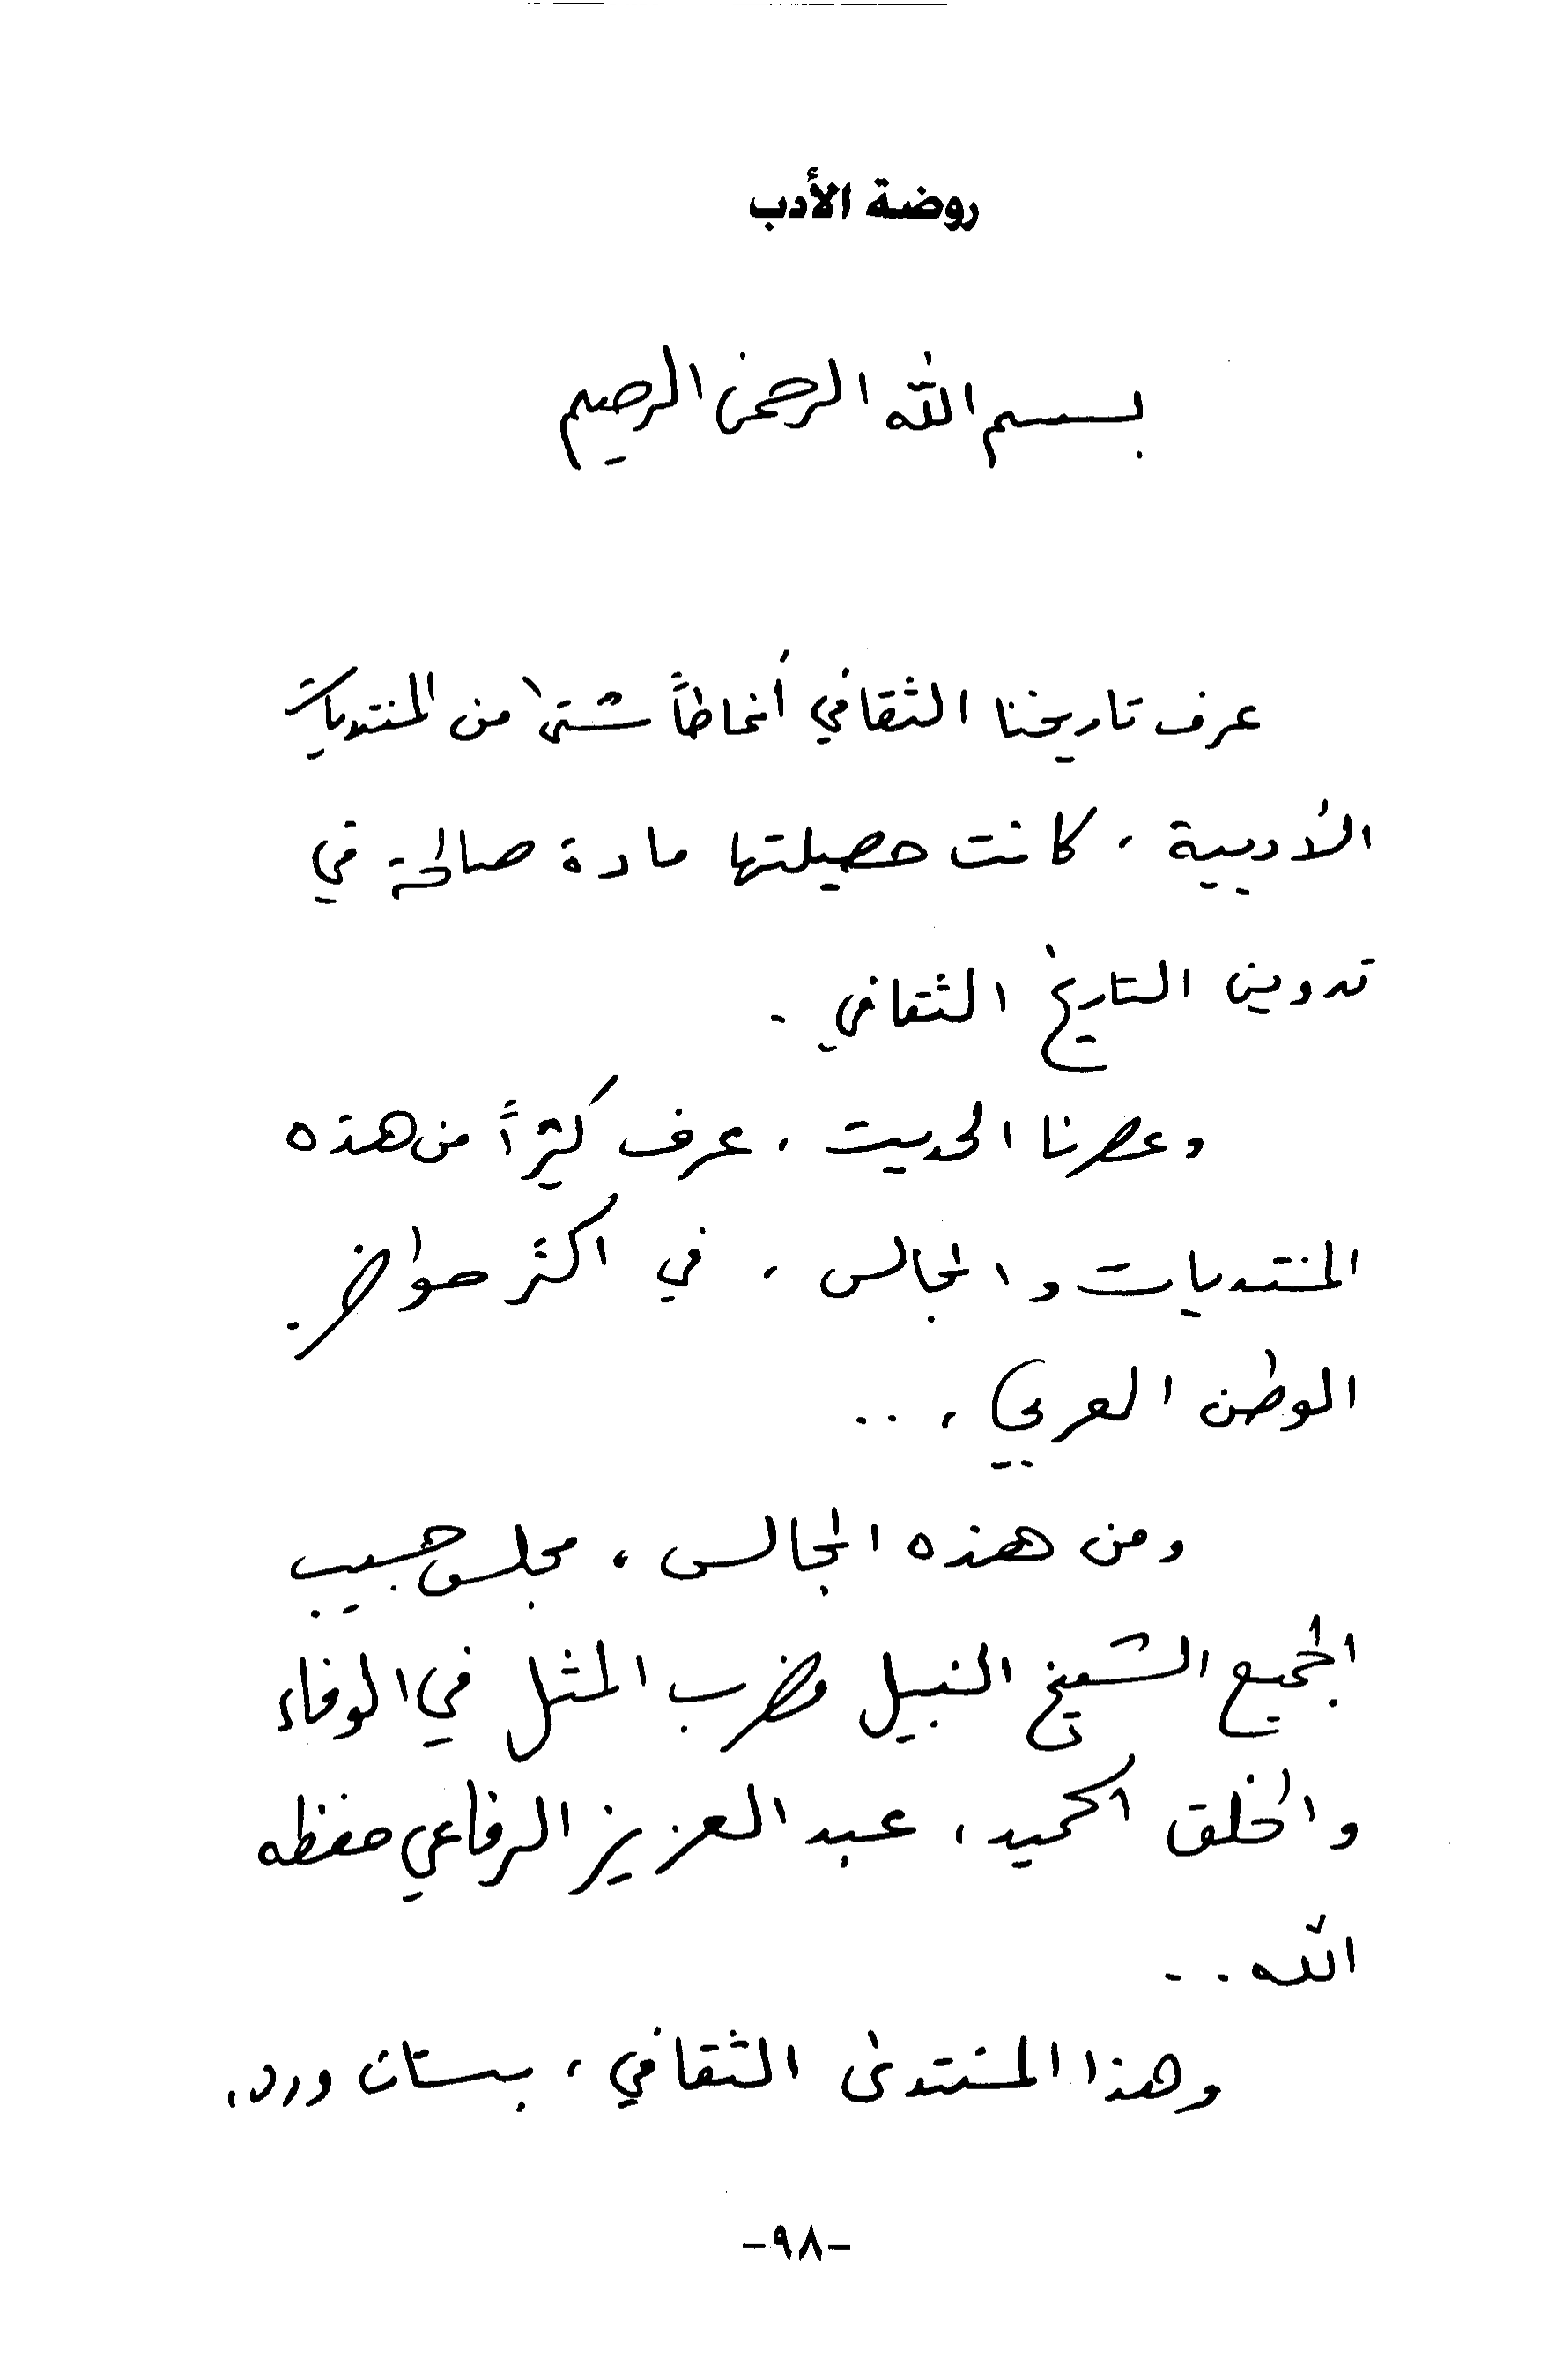 روضة الأدب
بسم الله الرحمن الرحيم
عرف تاريخنا الثقافي أنماطاً شتى من المنتديات
الأدبية ، كانت حصيلتها مادة صالحة في
تدوين التاريخ الثقافي .
وعصرنا الحديث ، عرف كثيراً من هذه
المنتديات والمجالس ، في اكثر حواضر
الوطن العربي ، ..
ومن هذه المجالس ، مجلس حبيب
الجميع الشيخ النبيل مضرب المثل في الوفاء
والخلق الحميد ، عبد العزيز الرفاعي حفظه
الله ..
وهذا المنتدى الثقافي ، بستان ورد ،
-٩٨-